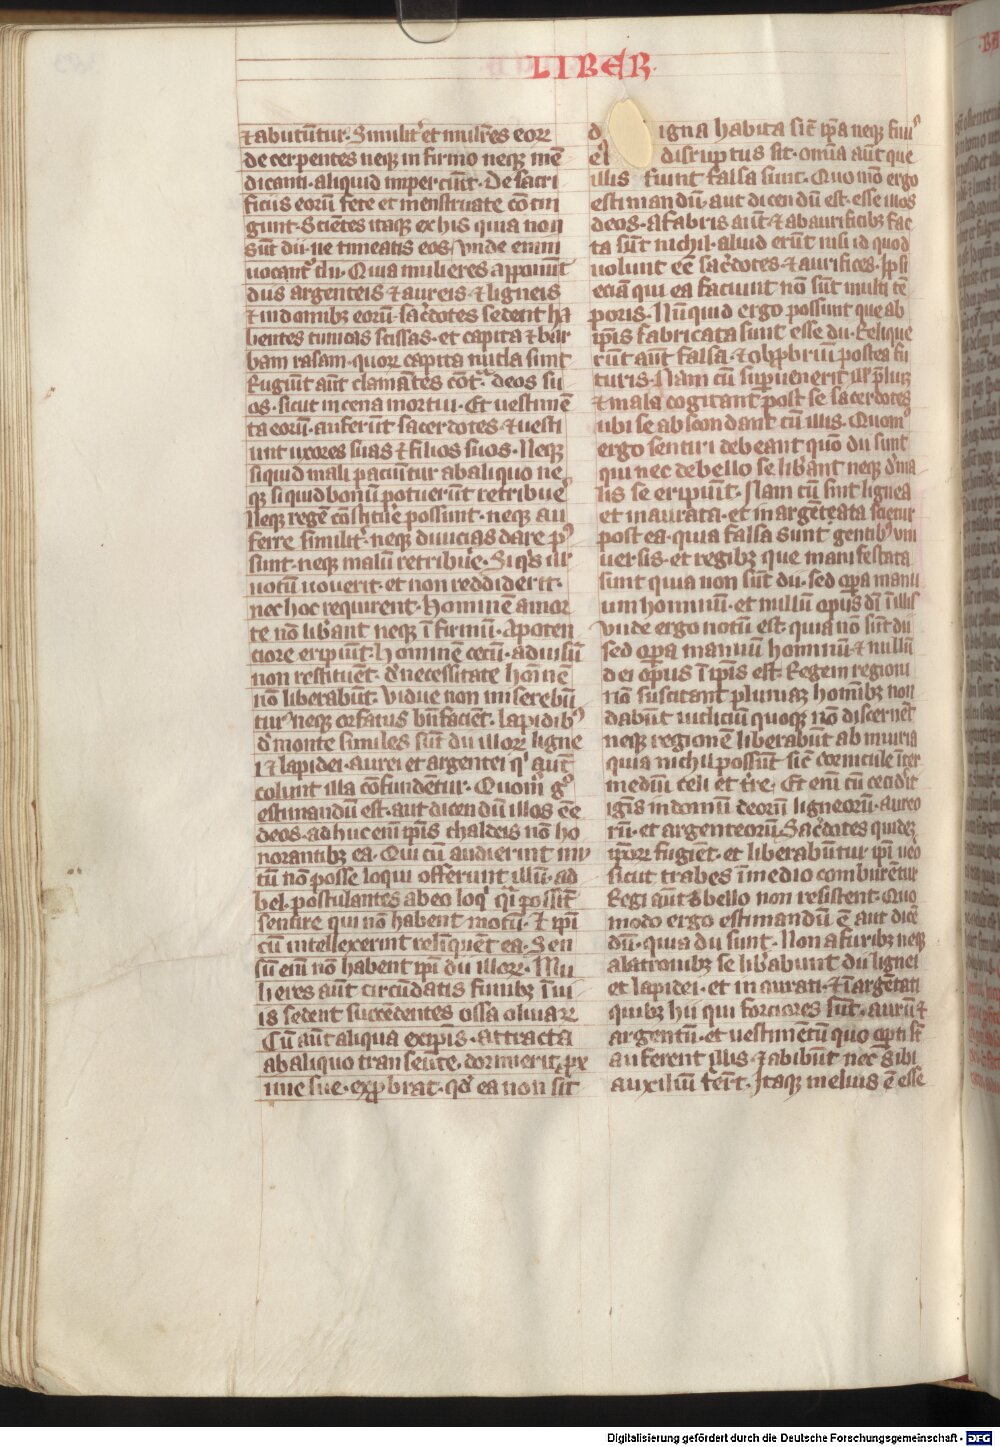 LIBER
⁊ abutūtur. Similit͛ et mulr̄es eoꝝ
de cerpentes neqꝫ infirmo neqꝫ mē
dicanti. aliquid imperciūt. De sacri
ficiis eorū fete et menstruate cōtin
gunt. Scientes itaqꝫ ex his quia nō
sūt dii. ne timeatis eos. Vnde enim
uocant᷑ dii. Quia mulieres apponūt
diis argenteis ⁊ aureis. ⁊ ligneis
⁊ in domibꝫ eorū. sac͛dotes sedent ha
bentes tunicas scissas. et capita ⁊ bar
bam rasam. quoꝝ capita nuda sunt
Rugiūt aūt clamātes cōtᵃ deos su
os. sicut in cena mortui. Et uestimē
ta eorū. auferūt sacerdotes. ⁊ uesti
unt uxores suas ⁊ filios suos. Neqꝫ
siquid mali paciūtur ab aliquo ne
qꝫ siquid bonū potuerūt retribue͛
Neqꝫ regē cōstitue͛ possunt. neqꝫ au
ferre similit͛. neqꝫ diuicias dare pꝰ
sunt. neqꝫ malū retribue͛. Si qͥs illꝭ
uotū uouerit. et non reddiderit.
nec hoc requirent. Hominē a mor
te nō lib͛ant neqꝫ īfirmū. a poten
ciore eripiūt. Hominē cecū. ad uisū
non restituēt. d̓ necessitate hoīnē
nō liberabūt. Vidue non miserebū
tur. neqꝫ orfanis bn̄faciēt. lapidibꝰ
d̓ monte similes sūt dii illoꝝ ligne
i ⁊ lapidei. aurei et argentei qͥ aūt
colunt illa cōfundētur. Quomͦ gͦ
estimandū est. aut dicendū illos eē̄
deos. adhuc enī ip̄is chaldeis nō ho
norantibꝫ ea. Qui cū audierint mu
tū nō posse loqui offerunt illū. ad
bel. postulantes ab eo loqͥ qͣi possīt
sentire qui nō habent motū. Et ip̄i
cū intellexerint relīquēt ea. Sen
sū enī nō habent ip̄i dii illoꝝ. Mu
lieres aūt circūdatis funibꝫ ī ui
is sedent succēdentes ossa oliuaꝝ
Cū aūt aliqua ex ip̄is. attracta
ab aliquo transeūte. dormierit ꝓx
ime sue. exꝓbrat. qd̓ ea non sit
digna habita sic̄ ip̄a neqꝫ funiꝰ
eiꝰ disruptus sit. omīa aūt que
illis fiunt falsa sunt. Quomō ergo
estimandū. aut dicendū est. esse illos
deos. A fabris aūt ⁊ ab aurificibꝫ fac
ta sūt nichil. aliud erūt nisi id quod
uolunt eē̄ sac͛dotes. ⁊ aurifices. Ipsi
eciā qui ea faciunt nō sūt multi tē
poris. Nūquid ergo possunt que ab
ip̄is fabricata sunt esse dii. Relique
rūt aūt falsa. ⁊ obꝓbriū postea fu
turis. Nam cū suꝑuenerit illꝭ p̄liuꝫ
⁊ mala cogitant post se sacerdotes
ubi se abscondant cū illis. Quomͦ
ergo sentiri debeant quō dii sunt
qui nec de bello se lib͛ant neqꝫ d̓ ma
lis se eripiūt. Nam cū sint lignea
et inaurata. et inargēteata scietur
postea. quia falsa sunt gentibꝰ vni
uersis. et regibꝫ que manifestata
sunt quia non sūt dii. sed oꝑa manu
um hominū. et nullū opus dī ī illis
Vnde ergo notū est. quia nō sūt dii
sed oꝑa manuū hominū. ⁊ nullū
dei opus ī ip̄is est. Regem regioni
nō suscitant pluuiaꝫ homībꝫ non
dabūt iudiciū quoqꝫ nō discernēt
neqꝫ regionē liberabūt ab iniuria
quia nichil possūt sic̄ cornicule īter
mediū celi et t͛re. Et enī cū cecid͛it
igīs in domū deorū ligneorū. aureo
rū. et argenteorū. Sac͛dotes quideꝫ
ip̄oꝝ fugiēt. et liberabūtur ip̄i ueͦ
sicut trabes ī medio comburētur
Regi aūt ⁊ bello non resistent. Quo
modo ergo estimandū ē̄ aut dicē
dū. quia dii sunt. Non a furibꝫ neqꝫ
a latronibꝫ se lib͛abunt dii lignei
et lapidei. et inaurati. ⁊ īargētati
quibꝫ hii qui forciores sūt. aurū ⁊
argentū. et uestimētū quo oꝑti sꝭt
auferent illis. ⁊ abibūt nec sibi
auxiliū fer̄t. Itaqꝫ melius ē̄ esse
Digitalisierung gefördert durch die Deutsche Forschungsgemeinschaft - DFG